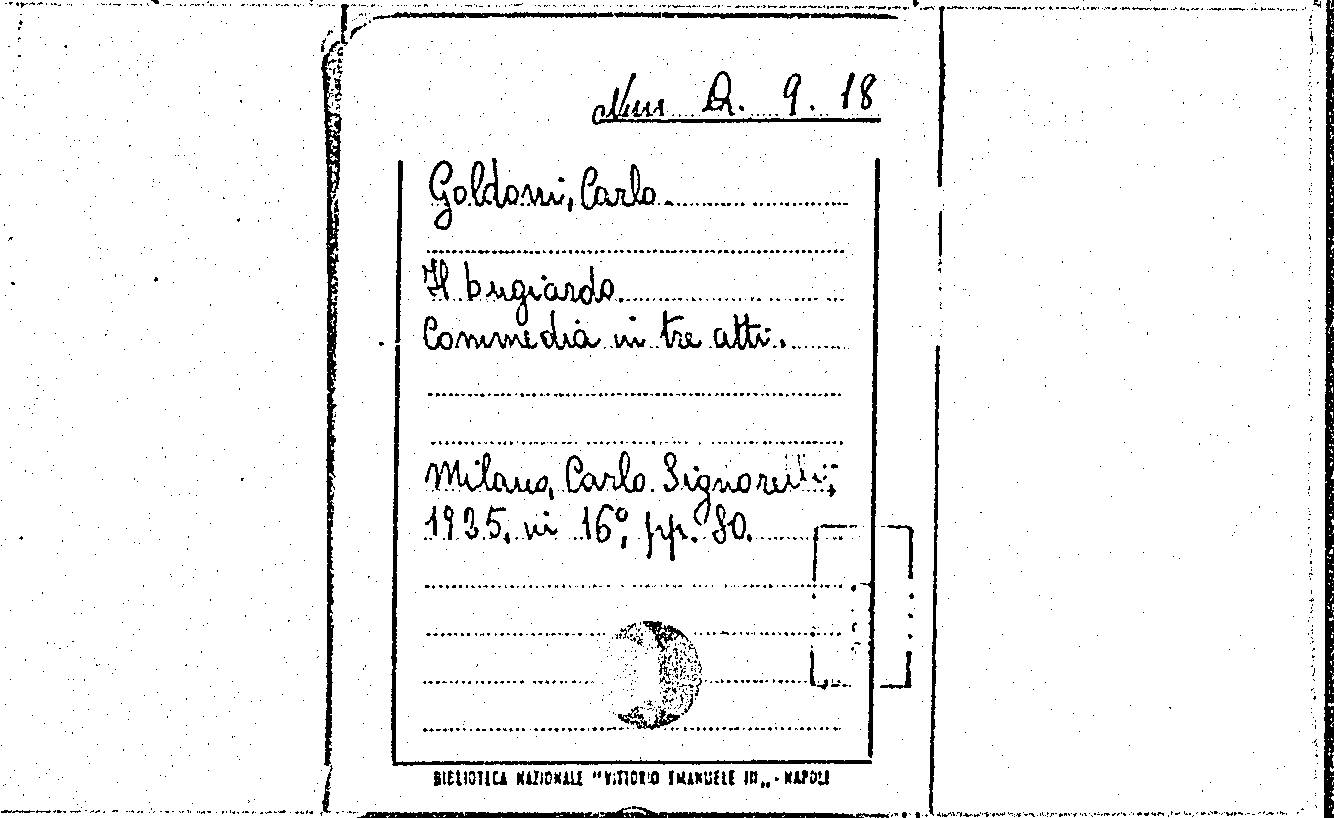 D. 9. 18
Goldoni, Carlo.
Il bugiardo.
Commedia in tre atti.
Milano, Carlo Signorelli,
1935, in 16°, pp. 80.
BIBLIOTECA NAZIONALE "VITTORIO EMANUELE III„ - NAPOLI